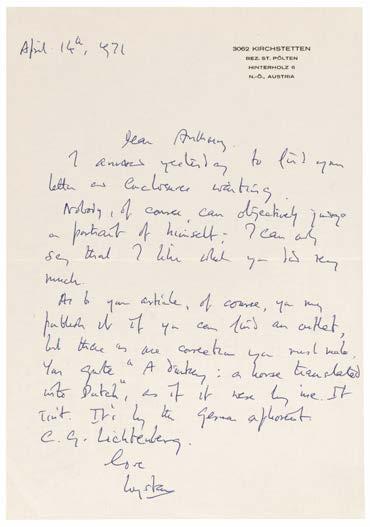 April 14th, 1971
3062 KIRCHSTETTEN
BEZ. ST. PÖLTEN
HINTERHOLZ 6
N.-Ö., AUSTRIA
Dear Anthony,
I arrived yesterday to find your
letter and enclosure waiting.
Nobody, of course, can objectively judge
a portrait of himself: I can only
say that I like what you did very
much.
As to your article, of course, you may
publish it if you can find an outlet,
but there is one correction you must make.
You quote "A donkey: a horse translated
into Dutch", as if it were by me. It
isn't. It's by the German aphorist
C. G. Lichtenberg.
love
Wystan